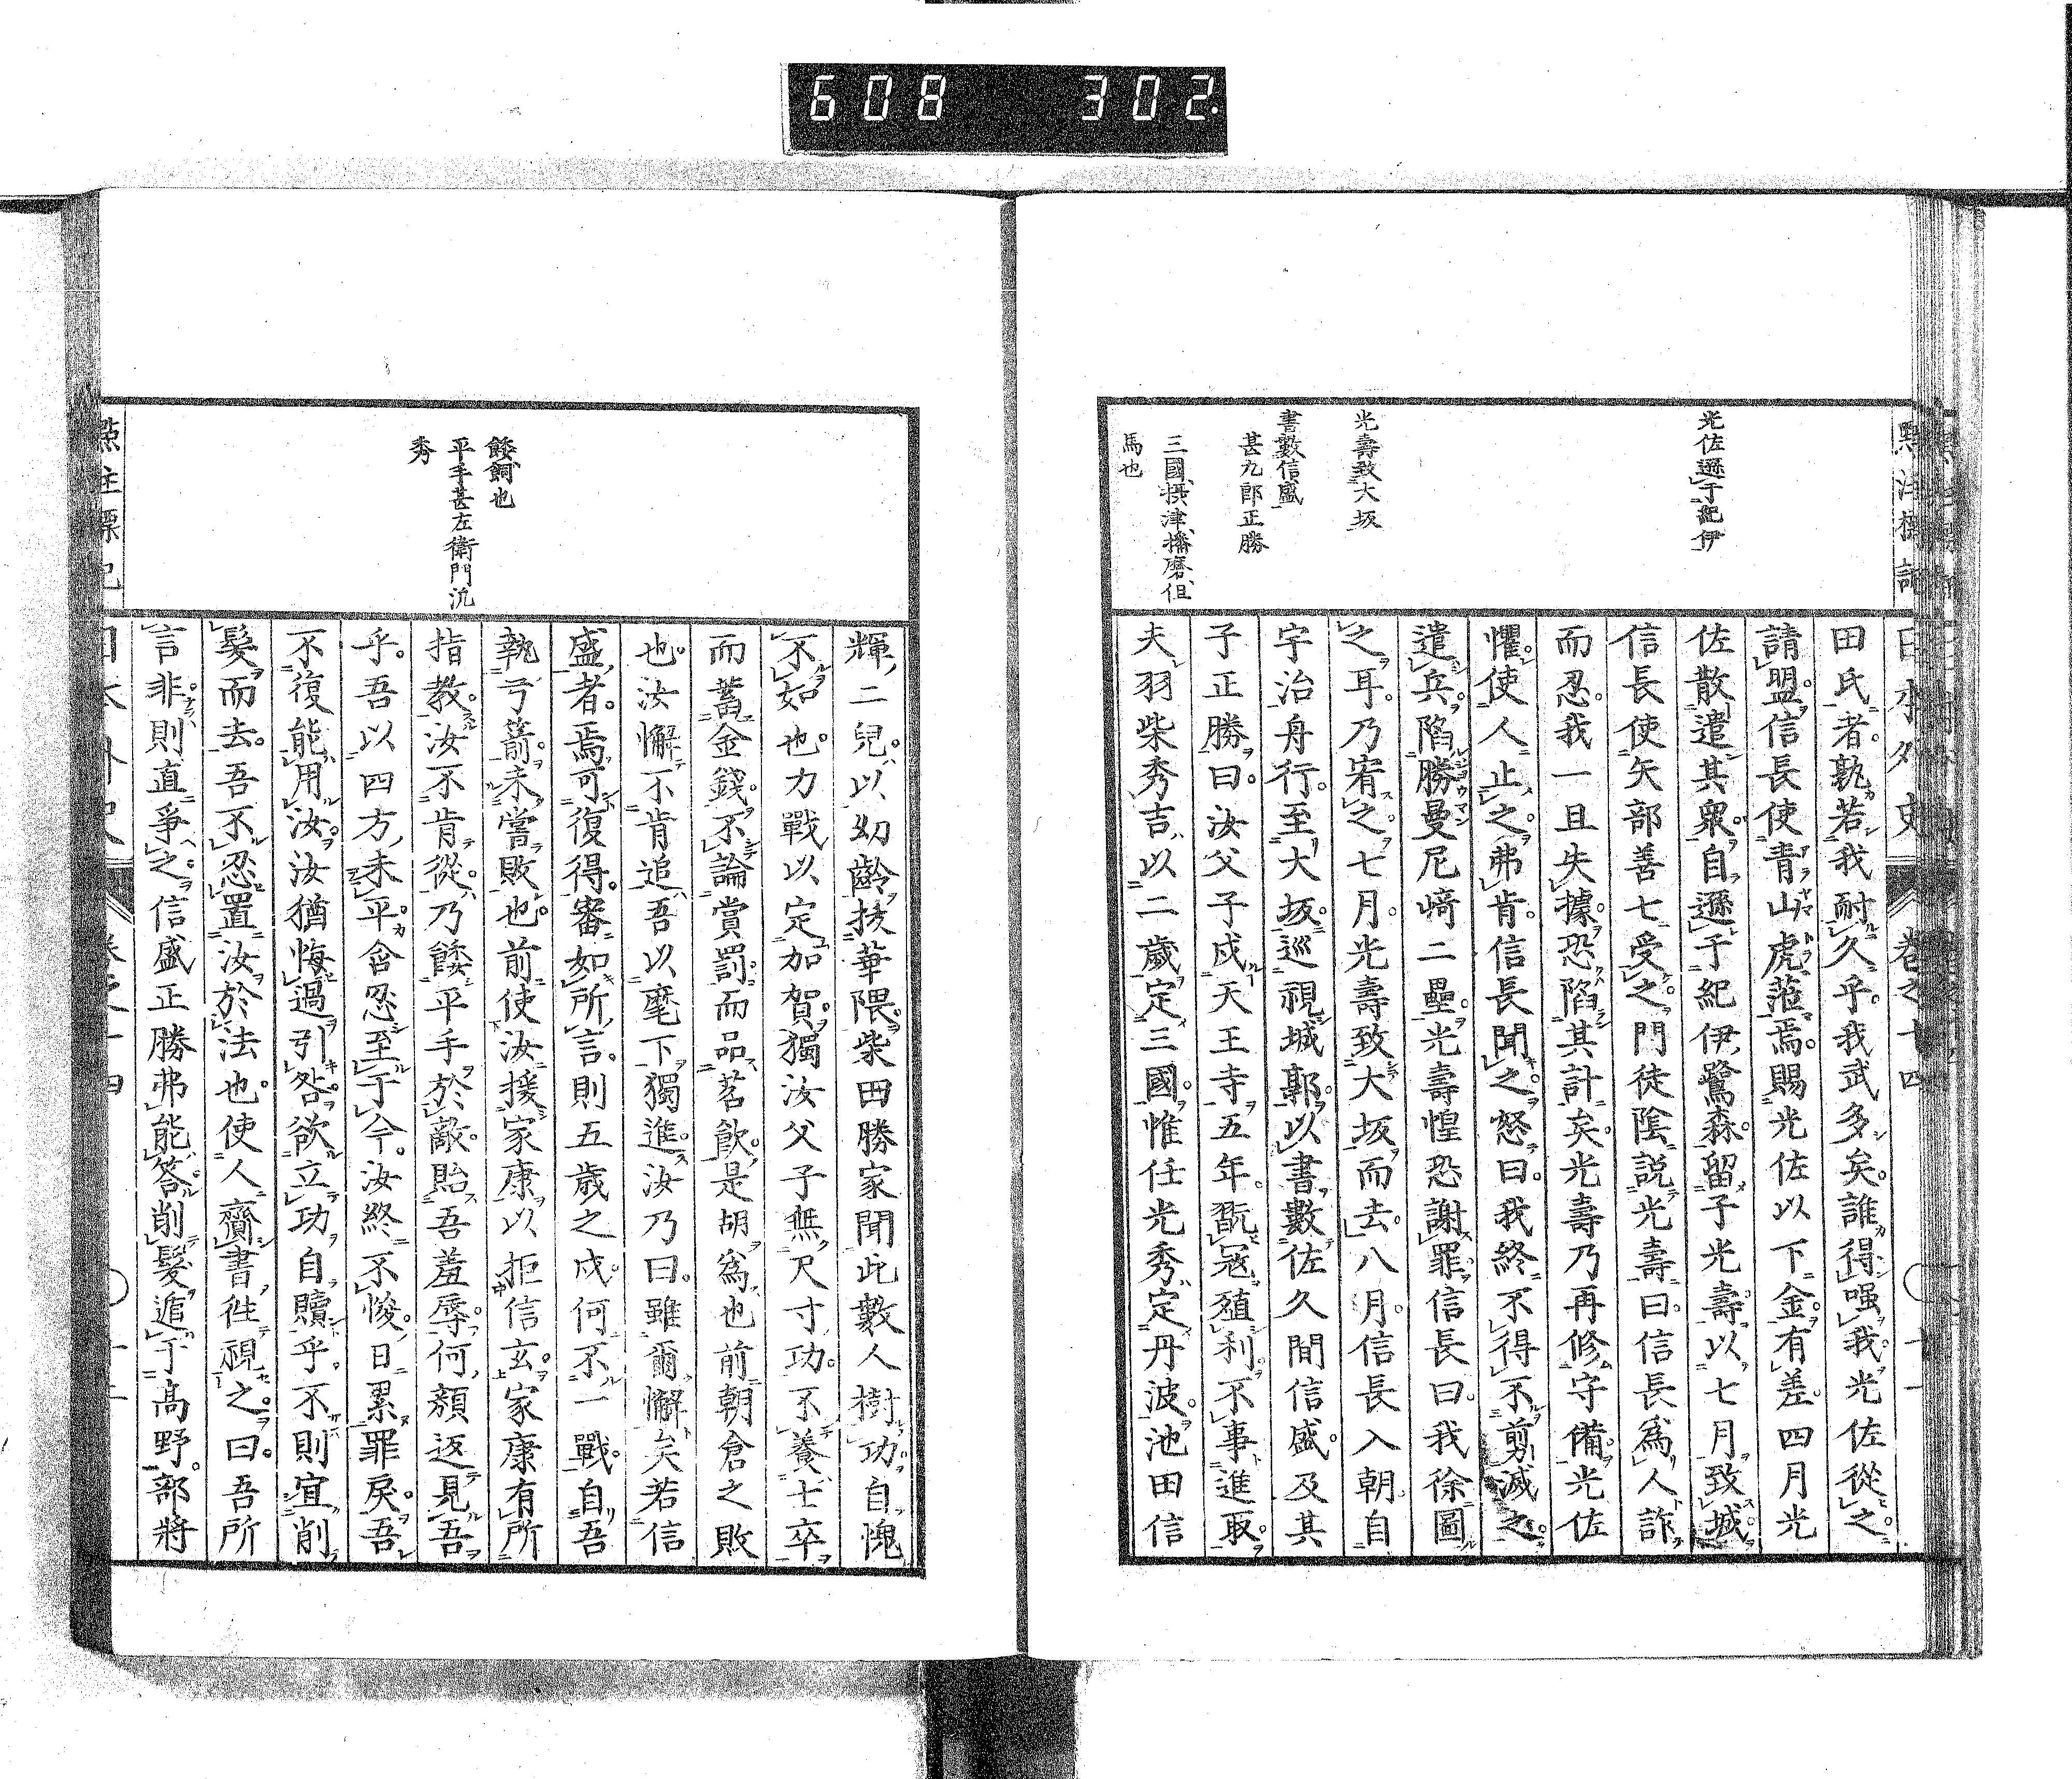 608 302
點注標記
日本外史 卷之十四 十一
光佐遜于紀伊
光壽致大坂
書數信盛
甚九郎正勝
三國、攝津、播磨、但
馬也
田氏者。孰若我耐久乎。我武多矣。誰得强我。光佐從之。
請盟。信長使青山虎蒞焉。賜光佐以下金有差。四月光
佐散遣其衆。自遜于紀伊鷺森。留子光壽。以七月致城。
信長使矢部善七受之。門徒陰説光壽曰。信長爲人詐
而忍。我一旦失據。恐陷其計矣。光壽乃再修守備。光佐
懼。使人止之。弗肯。信長聞之。怒曰。我終不得不剪滅之。
遣兵。陷勝曼尼﨑二壘。光壽惶恐謝罪。信長曰。我徐圖
之耳。乃宥之。七月。光壽致大坂而去。八月信長入朝。自
宇治舟行。至大坂。巡視城郭。以書數佐久間信盛。及其
子正勝曰。汝父子戍天王寺五年。翫冦殖利。不事進取。
夫羽柴秀吉以二歲定三國。惟任光秀定丹波。池田信
輝二兒。以幼齡拔華隈。柴田勝家聞此數人樹功。自愧
不如也。力戰以定加賀。獨汝父子無尺寸功。不養士卒。
而蓄金錢。不論賞罰。而品茗飮。是胡爲也。前朝倉之敗
也。汝懈不肯追。吾以麾下獨進。汝乃曰。雖爾懈矣。若信
盛者。焉可復得。審如所言。則五歲之戍。何不一戰。自吾
執弓箭。未嘗敗也。前使汝援家康。以拒信玄。家康有所
指教。汝不肯從。乃餧平手於敵。貽吾羞辱。何顏返見吾
乎。吾以四方未平。含忍至于今。汝終不悛。日累罪戾。吾
不復能用汝。汝猶悔過引咎。欲立功自贖乎。不則宜削
髮而去。吾不忍置汝於法也。使人齎書往視之。曰。吾所
言非。則直爭之。信盛正勝弗能答。削髮遁于高野。部將
餧、飼也
平手甚左衛門汎
秀
點注標記
日本外史 卷之十四 十二